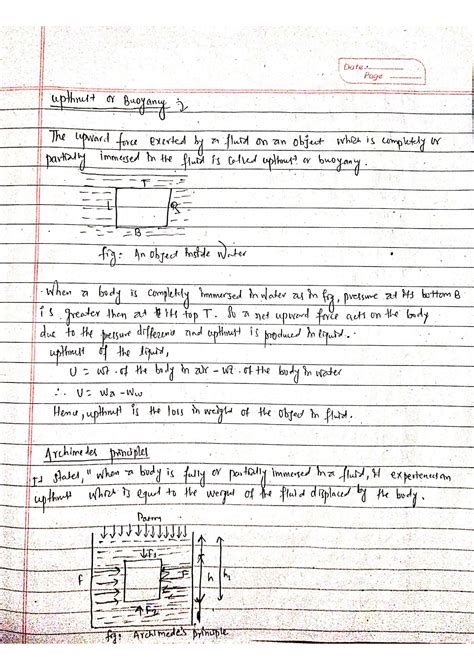 Date:
Page
upthrust or Buoyancy :-
The upward force exerted by a fluid on an object which is completely or
partially immersed in the fluid is called upthrust or buoyancy.
T
L R
B
fig: An Object inside Water
When a body is completely immersed in water as in fig, pressure at its bottom B
is greater then at its top T. So a net upward force acts on the body
due to the pressure difference and upthrust is produced in liquid.
upthrust of the liquid,
U = wt. of the body in air - wt. of the body in water
∴ U = Wa - Ww
Hence, upthrust is the loss in weight of the object in fluid.
Archimedes principles
It states, "When a body is fully or partially immersed in a fluid, it experiences an
upthrust which is equal to the weight of the fluid displaced by the body.
Patm
F1
F F h h1
F2
fig: Archimede's principle